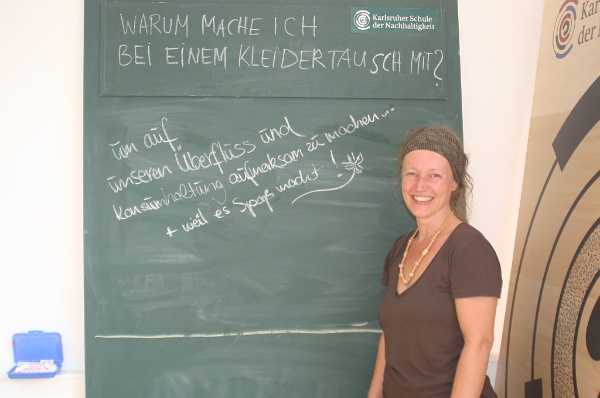 WARUM MACHE ICH
BEI EINEM KLEIDERTAUSCH MIT?
Karlsruher Schule
der Nachhaltigkeit
um auf
unseren Überfluss und
Konsumhaltung aufmerksam zu machen...
+ weil es Spaß macht!
Karls
der N